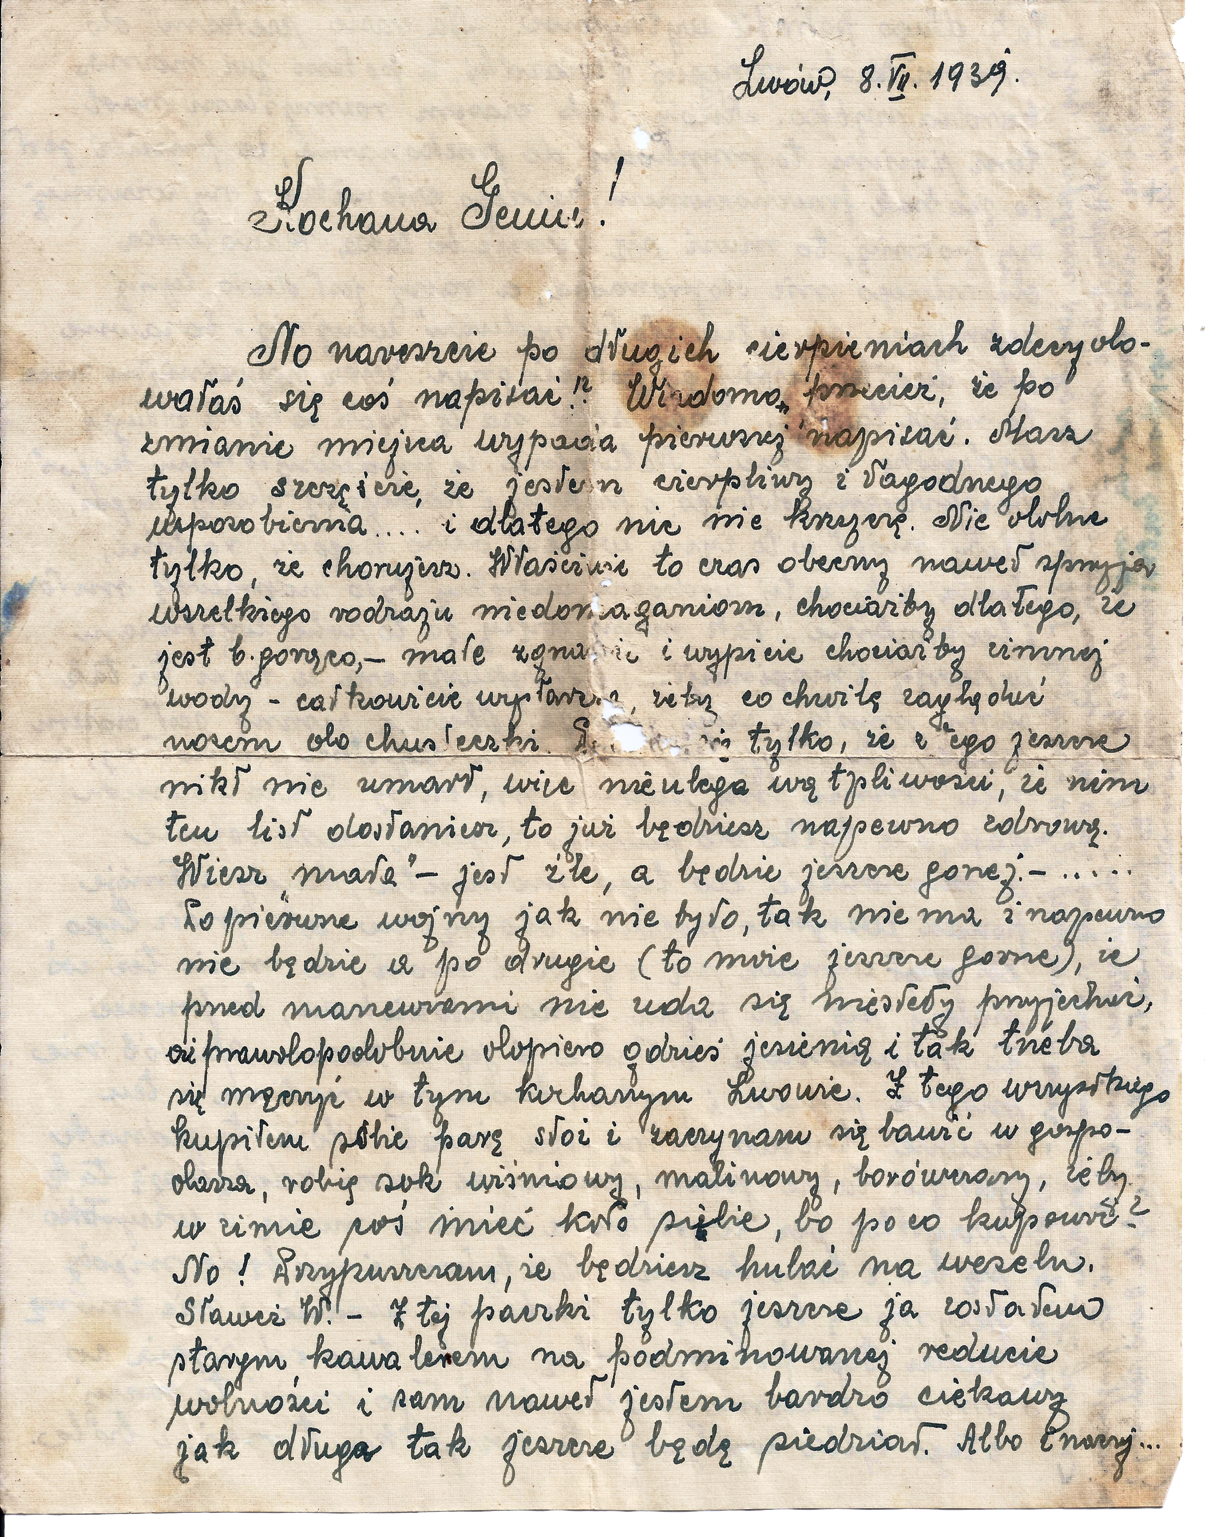 Lwów, 8.VII.1939.
Kochana Geniu!
No nareszcie po długich cierpieniach zdecydo-
wałaś się coś napisać!? Wiadomo przecież, że po
zmianie miejsca wypada pierwszej napisać. Masz
tylko szczęście, że jestem cierpliwy i łagodnego
usposobienia.... i dlatego nic nie krzyczę. Nie dobrze
tylko, że chorujesz. Właściwie to czas obecny nawet sprzyja
wszelkiego rodzaju niedomaganiom, chociażby dlatego, że
jest b. gorąco,— małe i wypicie chociażby zimnej
wody - całkowicie wystarcza, żeby co chwilę zaglądać
nosem do chusteczki. tylko, że z tego jeszcze
nikt nie umarł, więc nie ulega wątpliwości, że nim
ten list dostaniesz, to już będziesz napewno zdrową.
Wiesz „mała" — jest źle, a będzie jeszcze gorzej.— .....
Po pierwsze wojny jak nie było, tak nie ma i napewno
nie będzie a po drugie (to może jeszcze gorsze), że
przed manewrami nie uda się niestety przyjechać,
aż prawdopodobnie dopiero gdzieś jesienią i tak trzeba
się męczyć w tym kochanym Lwowie. Z tego wszystkiego
kupiłem sobie parę słoi i zaczynam się bawić w gospo-
darza, robię sok wiśniowy, malinowy, borówczany, żeby
w zimie coś mieć koło siebie, bo po co kupować?
No! Przypuszczam, że będziesz hulać na weselu.
Sławci W. — Z tej paczki tylko jeszcze ja zostałem
starym kawalerem na podminowanej reducie
wolności i sam nawet jestem bardzo ciekawy
jak długo tak jeszcze będę siedział. Albo inaczej...